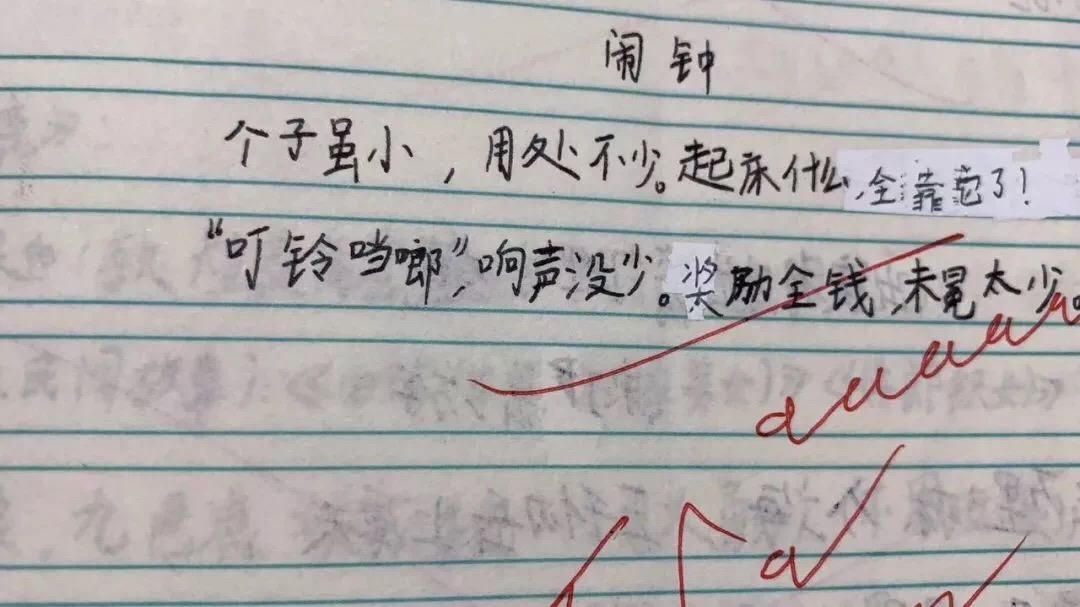 闹钟
个子虽小，用处不少。起床什么，全靠它了！
“叮铃哐啷”，响声没少。奖励全钱，未冕太少。